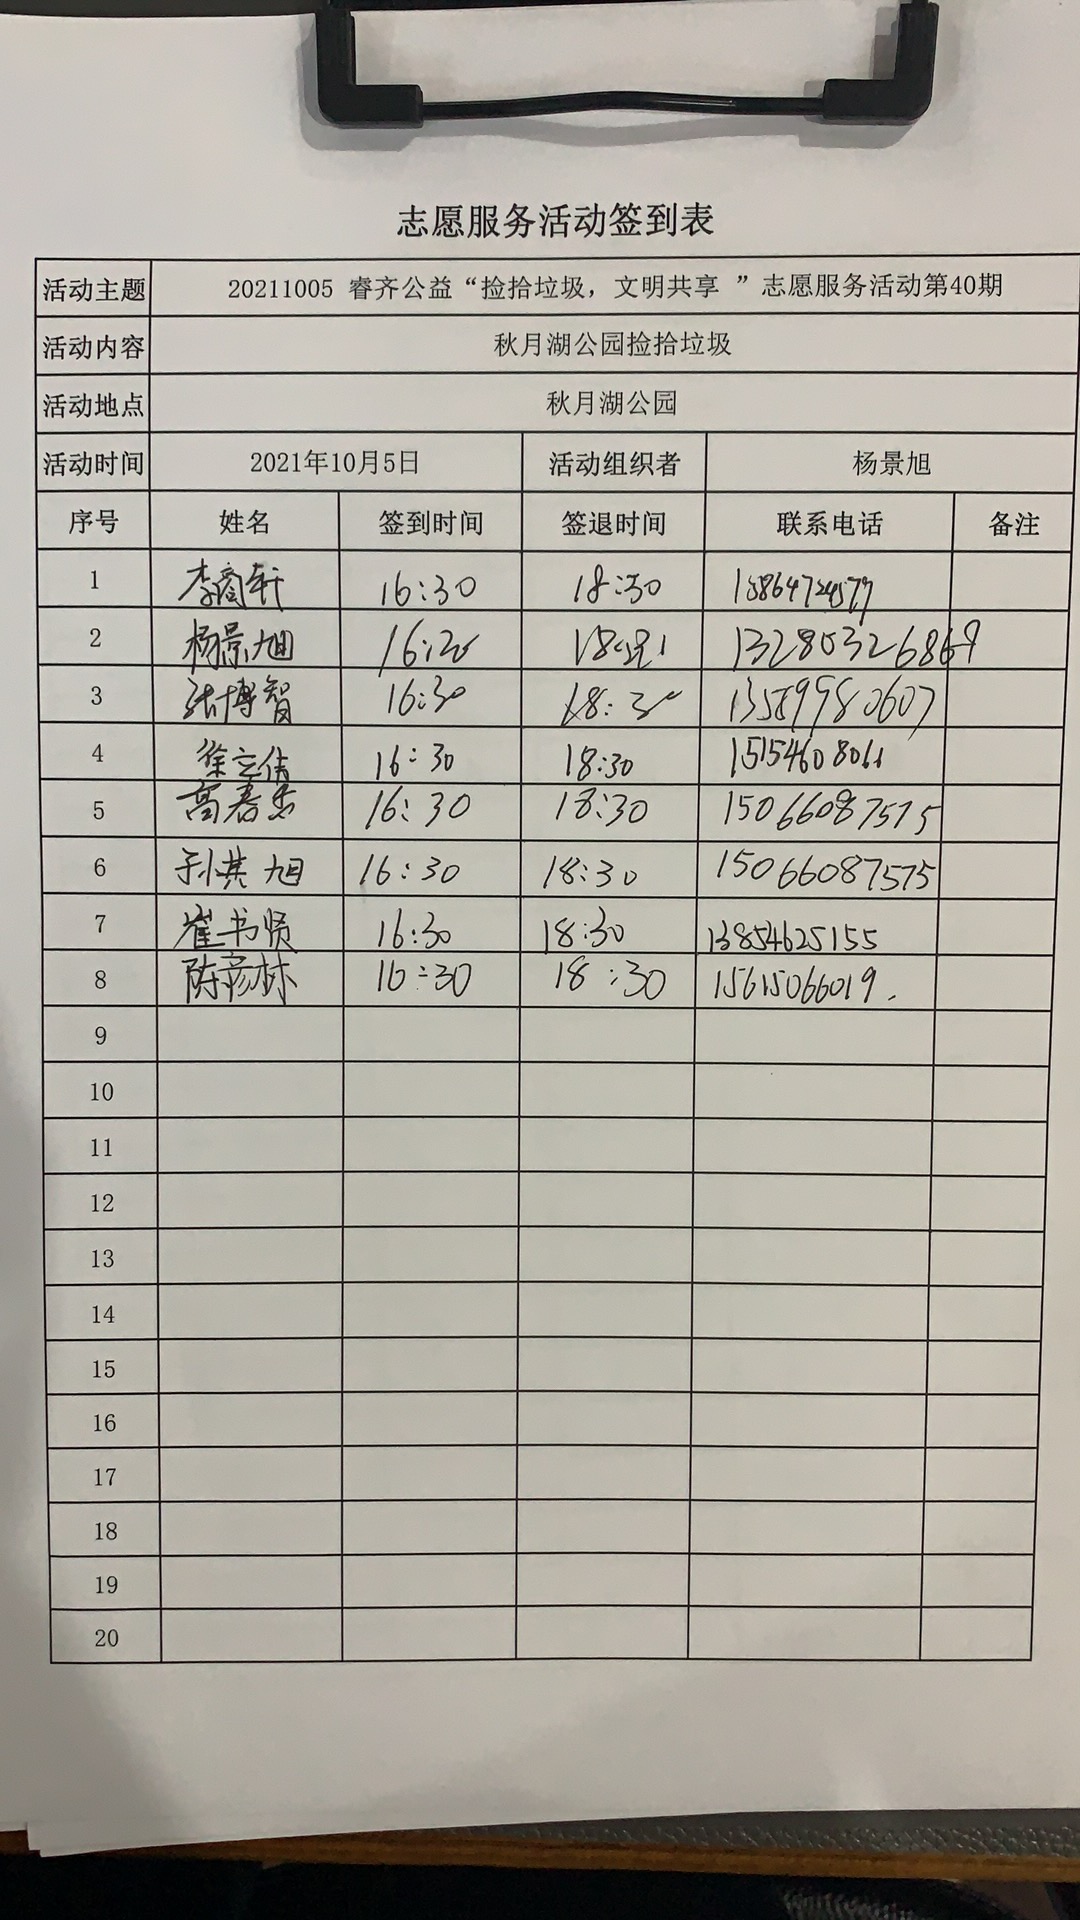 志愿服务活动签到表
活动主题 20211005 睿齐公益“捡拾垃圾，文明共享 ”志愿服务活动第40期
活动内容 秋月湖公园捡拾垃圾
活动地点 秋月湖公园
活动时间 2021年10月5日 活动组织者 杨景旭
序号 姓名 签到时间 签退时间 联系电话 备注
1 李商轩 16:30 18:30
2 杨景旭 16:20 13280326869
3 张博智 16:30 18:30 13589980607
4 16:30 18:30 15154608061
5 高春 16:30 18:30 15066087575
6 孙其旭 16:30 18:30 15066087575
7 崔书贤 16:30 18:30 13854625155
8 陈彦林 16:30 18:30 15615066019.
9
10
11
12
13
14
15
16
17
18
19
20